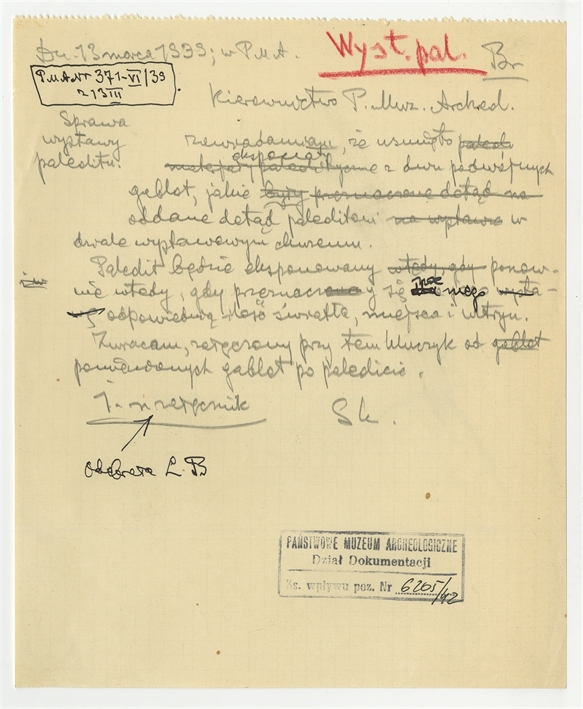 Dn. 13 marca 1939; w P.M.A.
Wyst. pal.
Br
P.M.A. Nr 371-VI/39
z 13 III
Kierownictwo P. Muz. Archeol.
Sprawa
wystawy
paleolitu.
zawiadamiam, że usunięto
eksponaty
z dwu podwójnych
gablot, jakie były przeznaczone dotąd na
oddane dotąd paleolitowi na wystawie w
dziale wystawowym
Paleolit będzie eksponowany wtedy, gdy ponow-
nie wtedy, gdy przeznaczony
odpowiednią ilość światła, miejsca i witryn.
Zwracam, załączony przy tem kluczyk od gablot
pomienionych gablot po paleolicie.
1 - n załącznik
Sk.
Odebrała L. B
PAŃSTWOWE MUZEUM ARCHEOLOGICZNE
Dział Dokumentacji
Ks. wpływu poz. Nr 6205/42